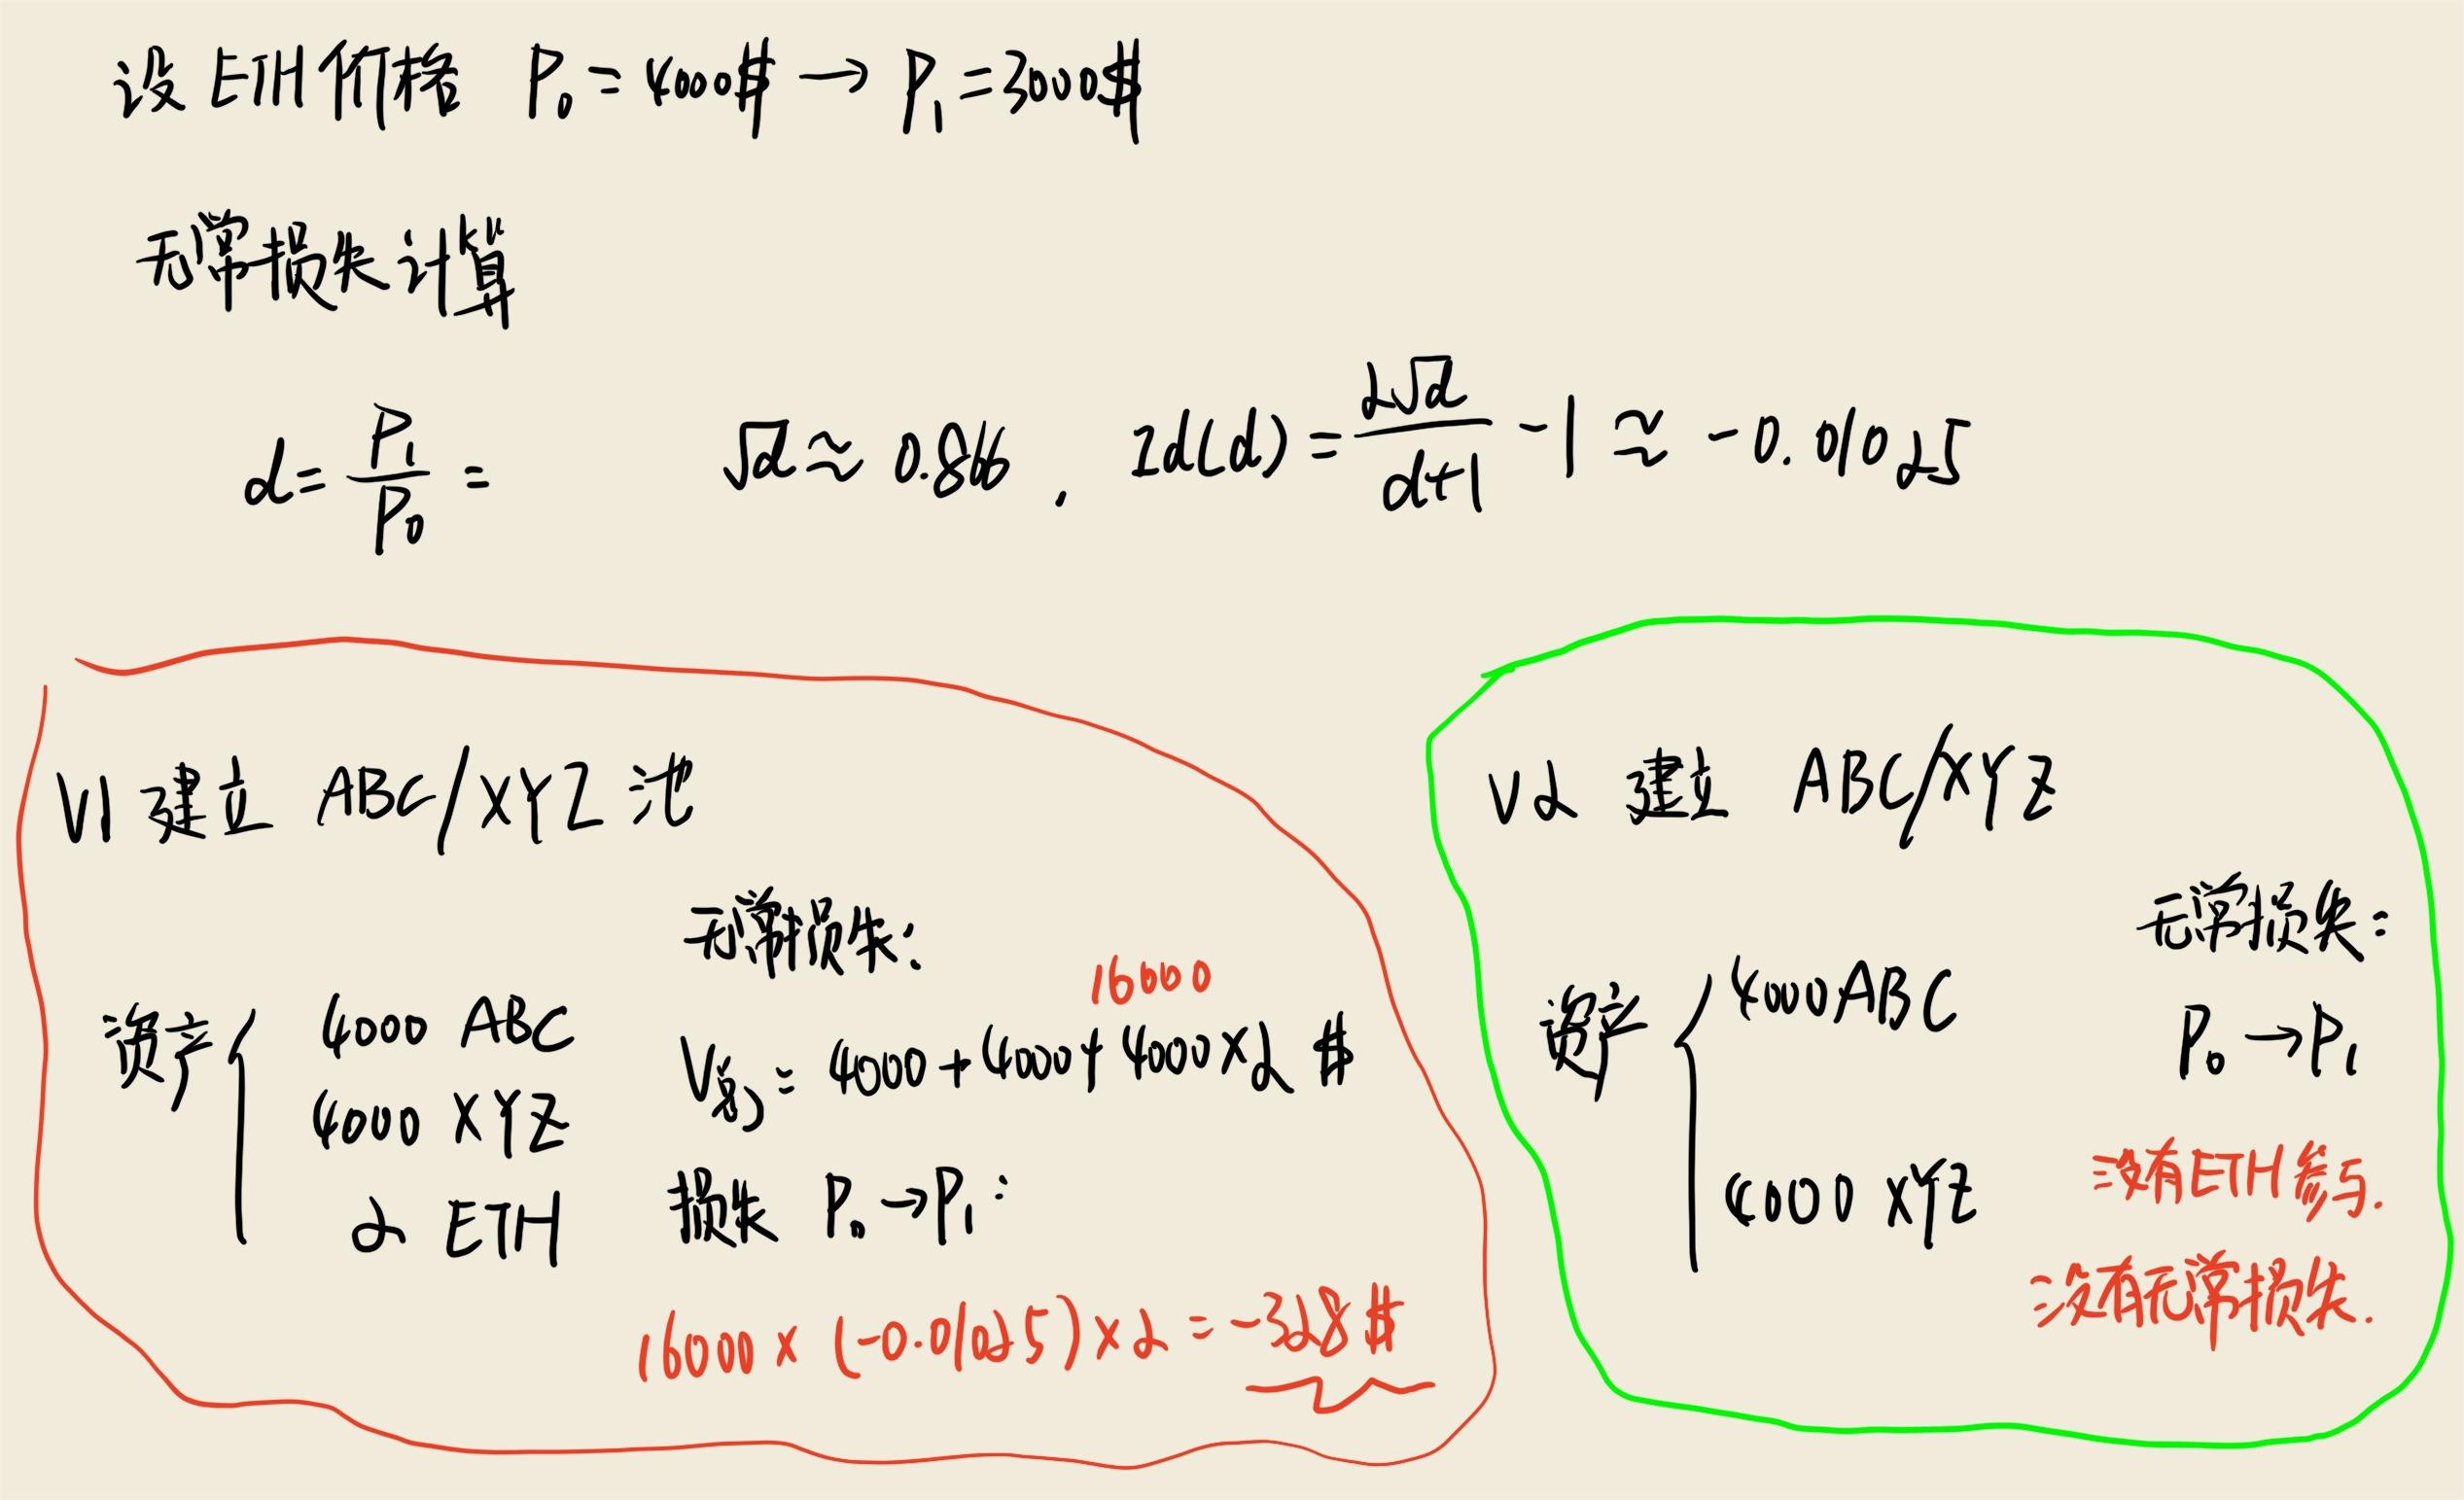 设 ETH 价格 P₀ = 4000$ → P₁ = 3000$
无常损失计算
d = P₁/P₀ =  √d ≈ 0.866 , Id(d) = 2√d/(d+1) - 1 ≈ -0.01025
V1 建立 ABC/XYZ 池
无常损失:
资产 { 4000 ABC
4000 XYZ
2 ETH
16000
V总 = 4000 + 4000 + 4000 × 2 $
损失 P₀ → P₁:
16000 × (-0.01025) × 2 = -328 $
V2 建立 ABC/XYZ
无常损失:
资产 { 4000 ABC
4000 XYZ
P₀ → P₁
没有ETH参与.
没有无常损失.